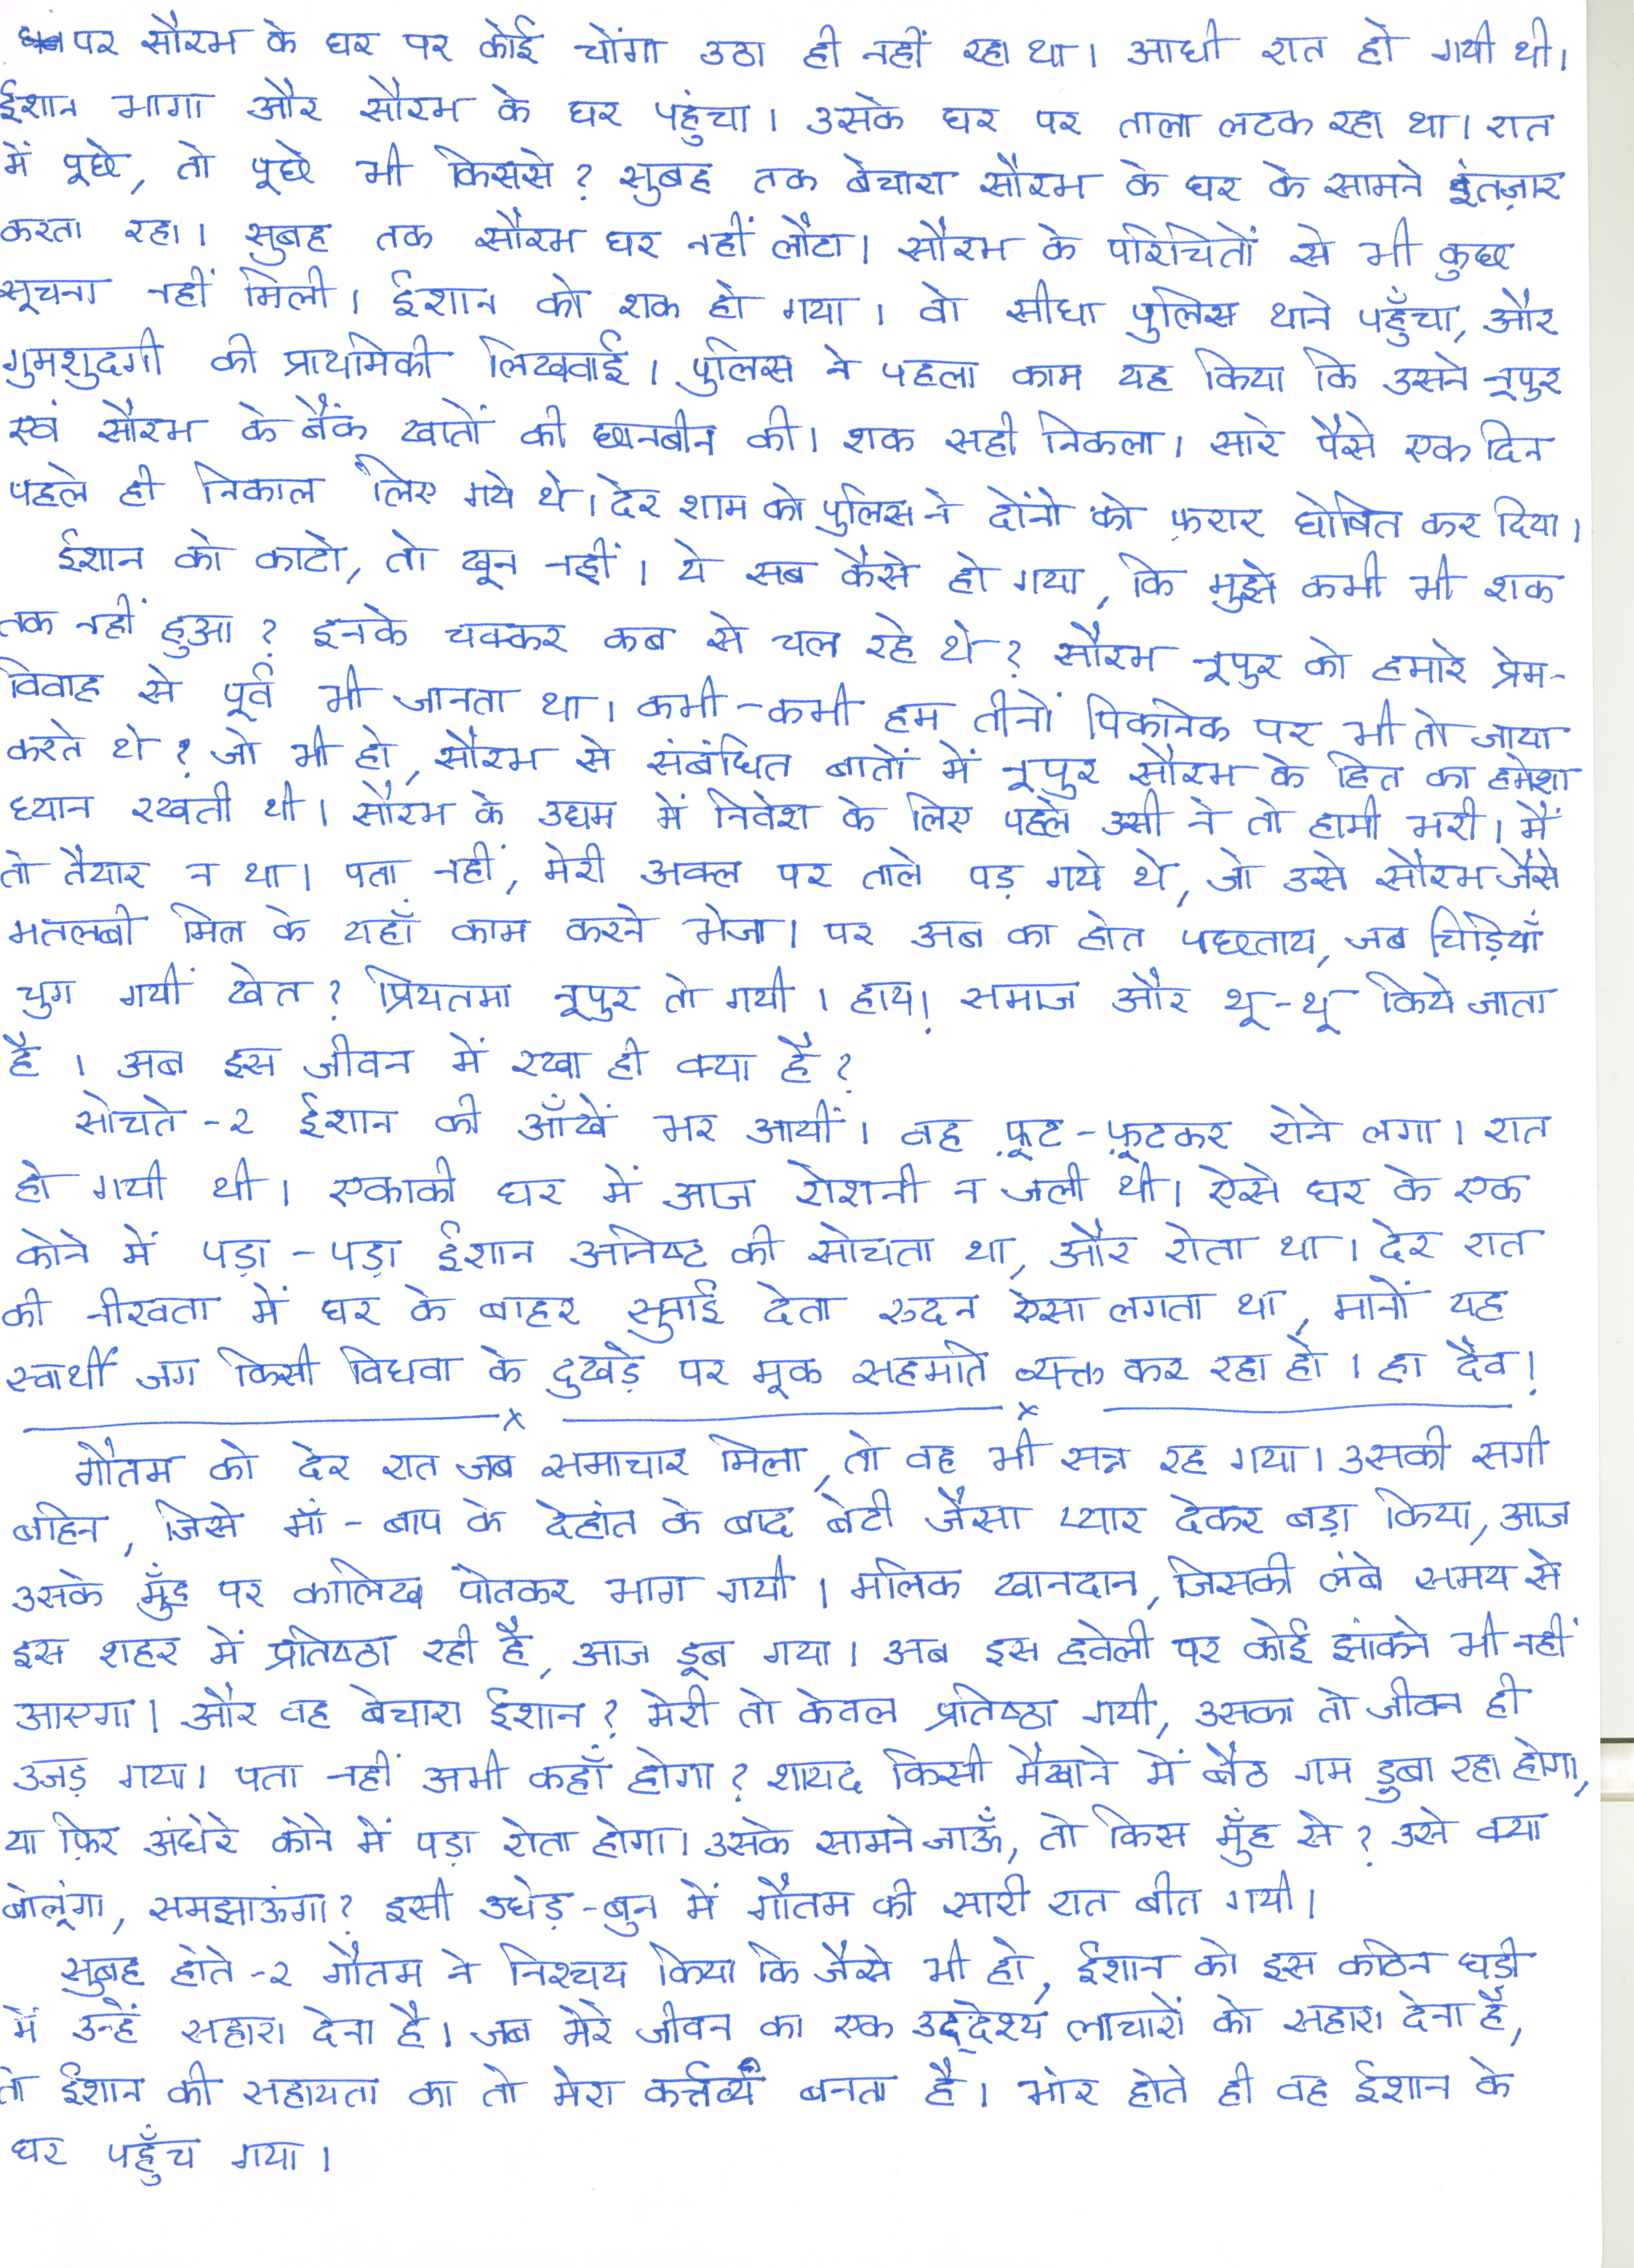 पर सौरभ के घर पर कोई चोंगा उठा ही नहीं रहा था। आधी रात हो गयी थी।
ईशान भागा और सौरभ के घर पहुंचा। उसके घर पर ताला लटक रहा था। रात
में पूछे, तो पूछे भी किससे? सुबह तक बेचारा सौरभ के घर के सामने इंतज़ार
करता रहा। सुबह तक सौरभ घर नहीं लौटा। सौरभ के परिचितों से भी कुछ
सूचना नहीं मिली। ईशान को शक हो गया। वो सीधा पुलिस थाने पहुँचा, और
गुमशुदगी की प्राथमिकी लिखवाई। पुलिस ने पहला काम यह किया कि उसने नूपुर
एवं सौरभ के बैंक खातों की छानबीन की। शक सही निकला। सारे पैसे एक दिन
पहले ही निकाल लिए गये थे। देर शाम को पुलिस ने दोंनो को फ़रार घोषित कर दिया।
ईशान को काटो, तो खून नहीं। ये सब कैसे हो गया, कि मुझे कभी भी शक
तक नहीं हुआ? इनके चक्कर कब से चल रहे थे? सौरभ नूपुर को हमारे प्रेम-
विवाह से पूर्व भी जानता था। कभी-कभी हम तीनों पिकनिक पर भी तो जाया
करते थे? जो भी हो, सौरभ से संबंधित बातों में नूपुर सौरभ के हित का हमेशा
ध्यान रखती थी। सौरभ के उद्यम में निवेश के लिए पहले उसी ने तो हामी भरी। मैं
तो तैयार न था। पता नहीं, मेरी अक्ल पर ताले पड़ गये थे, जो उसे सौरभ जैसे
मतलबी मित्र के यहाँ काम करने भेजा। पर अब का होत पछताय, जब चिड़ियाँ
चुग गयीं खेत? प्रियतमा नूपुर तो गयी। हाय! समाज और थू-थू किये जाता
है। अब इस जीवन में रखा ही क्या है?
सोचते-२ ईशान की आँखें भर आयीं। वह फ़ूट-फ़ूटकर रोने लगा। रात
हो गयी थी। एकाकी घर में आज रोशनी न जली थी। ऐसे घर के एक
कोने में पड़ा-पड़ा ईशान अनिष्ट की सोचता था, और रोता था। देर रात
की नीरवता में घर के बाहर सुनाई देता रुदन ऐसा लगता था, मानों यह
स्वार्थी जग किसी विधवा के दुखड़े पर मूक सहमति व्यक्त कर रहा हो। हा दैव!
x x
गौतम को देर रात जब समाचार मिला, तो वह भी सन्न रह गया। उसकी सगी
बहिन, जिसे माँ-बाप के देहांत के बाद बेटी जैसा प्यार देकर बड़ा किया, आज
उसके मुँह पर कालिख पोतकर भाग गयी। मलिक खानदान, जिसकी लंबे समय से
इस शहर में प्रतिष्ठा रही है, आज डूब गया। अब इस हवेली पर कोई झांकने भी नहीं
आएगा। और वह बेचारा ईशान? मेरी तो केवल प्रतिष्ठा गयी, उसका तो जीवन ही
उजड़ गया। पता नहीं अभी कहाँ होगा? शायद किसी मैखाने में बैठ गम डुबा रहा होगा,
या फ़िर अंधेरे कोने में पड़ा रोता होगा। उसके सामने जाऊँ, तो किस मुँह से? उसे क्या
बोलूंगा, समझाऊंगा? इसी उधेड़-बुन में गौतम की सारी रात बीत गयी।
सुबह होते-२ गौतम ने निश्चय किया कि जैसे भी हो, ईशान को इस कठिन घड़ी
में उन्हें सहारा देना है। जब मेरे जीवन का एक उद्देश्य लाचारों को सहारा देना है,
तो ईशान की सहायता का तो मेरा कर्त्तव्य बनता है। भोर होते ही वह ईशान के
घर पहुँच गया।